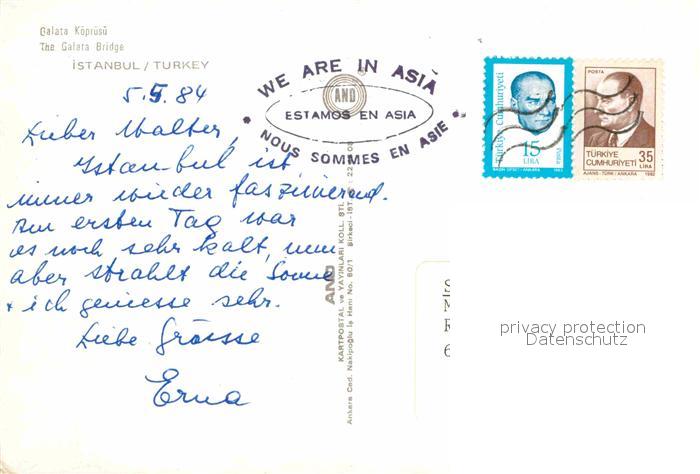 Galata Köprüsü
The Galata Bridge
İSTANBUL / TURKEY
5.5.84
Lieber Walter,
Istanbul ist
immer wieder faszinierend.
Am ersten Tag war
es noch sehr kalt, nun
aber strahlt die Sonne
+ ich geniesse sehr.
Liebe Grüsse
Erna
WE ARE IN ASIA
AND
ESTAMOS EN ASIA
NOUS SOMMES EN ASIE
Türkiye Cumhuriyeti
15
LİRA
POSTA
TÜRKİYE
CUMHURİYETİ
35
LİRA
AJANS-TÜRK / ANKARA 1982
AND
KARTPOSTAL ve YAYINLARI KOLL. ŞTİ.
Ankara Cad. Nakipoğlu İş Hanı No. 80/1 Sirkeci-İST
S
M
R
6
privacy protection
Datenschutz